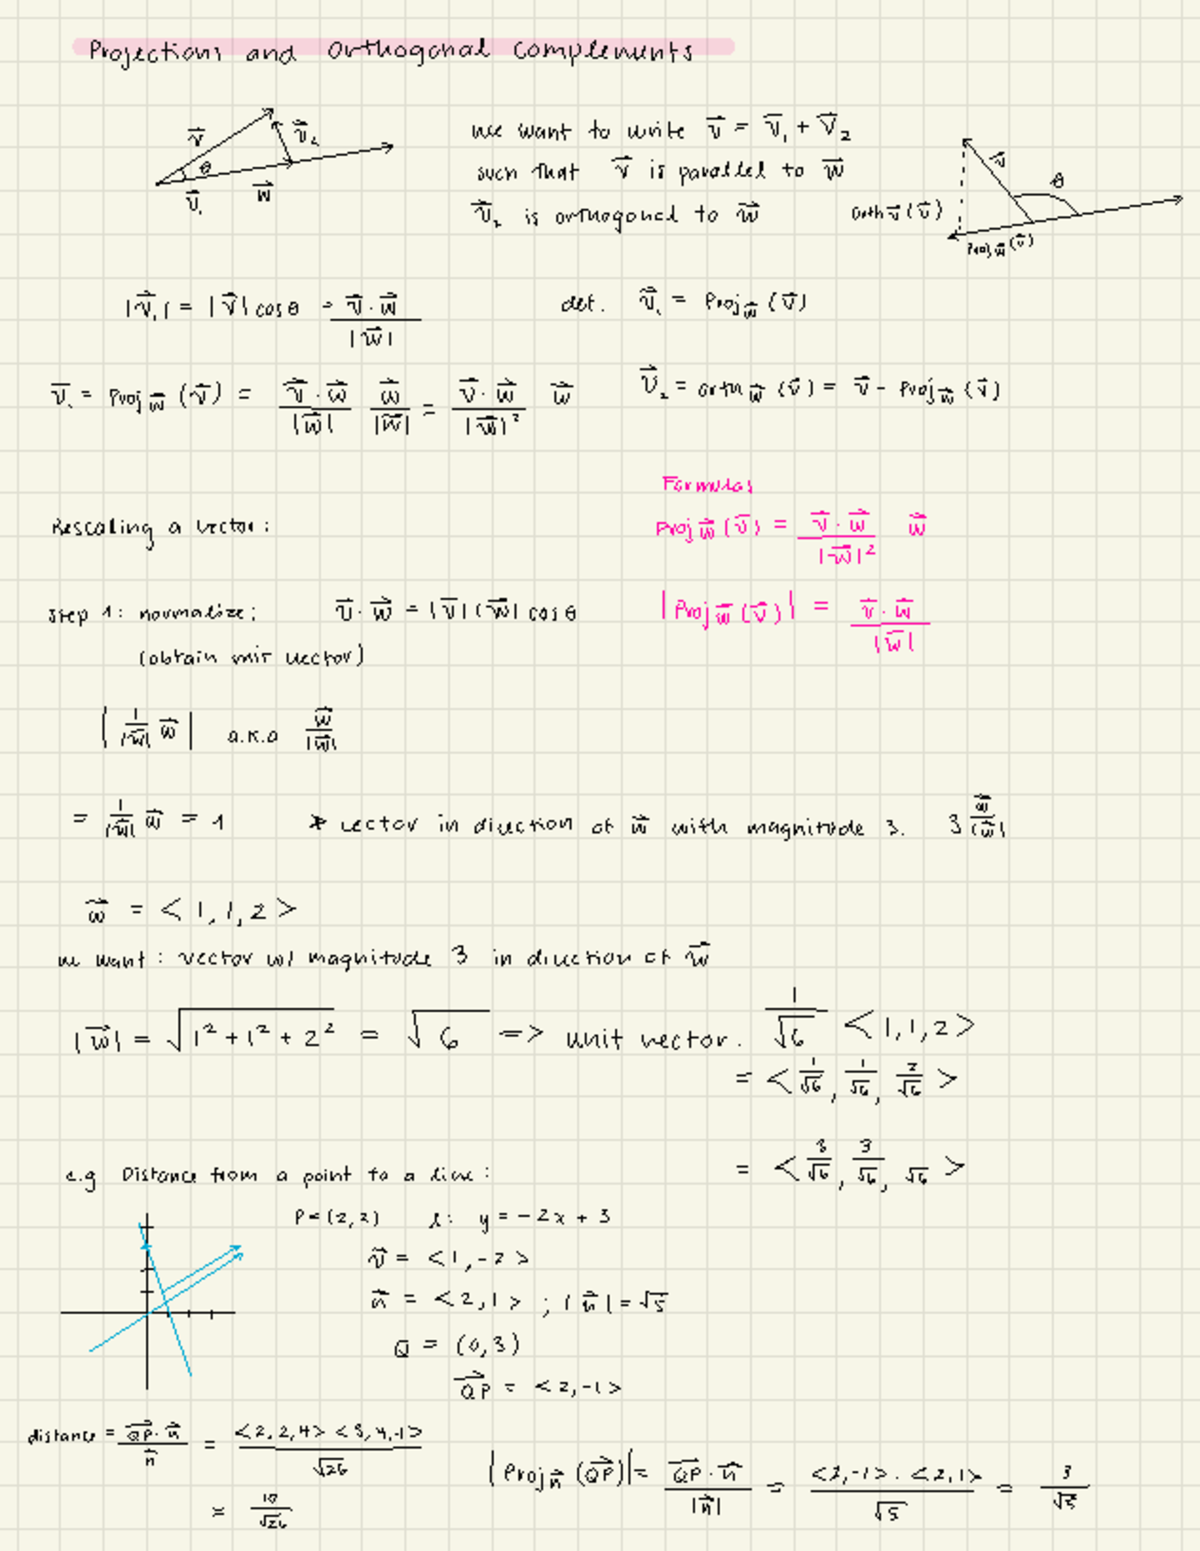 Projections and Orthogonal Complements
we want to write v⃗ = v⃗₁ + v⃗₂
such that v⃗ is parallel to w⃗
v⃗₂ is orthogonal to w⃗
v⃗ v⃗₂ θ v⃗₁ w⃗
v⃗ θ orth v⃗ (v⃗) Proj w⃗ (v⃗)
|v⃗₁| = |v⃗| cos θ = v⃗ · w⃗ / |w⃗| def. v⃗₁ = Proj w⃗ (v⃗)
v⃗₁ = Proj w⃗ (v⃗) = v⃗ · w⃗ / |w⃗| w⃗ / |w⃗| = v⃗ · w⃗ / |w⃗|² w⃗ v⃗₂ = orth w⃗ (v⃗) = v⃗ - Proj w⃗ (v⃗)
Formulas
Rescaling a vector: Proj w⃗ (v⃗) = v⃗ · w⃗ / |w⃗|² w⃗
Step 1: normalize: v⃗ · w⃗ = |v⃗| |w⃗| cos θ |Proj w⃗ (v⃗)| = v⃗ · w⃗ / |w⃗|
(obtain unit vector)
| 1/|w⃗| w⃗ | a.k.a w⃗ / |w⃗|
= 1/|w⃗| w⃗ = 1 * vector in direction of w⃗ with magnitude 3. 3 w⃗ / |w⃗|
w⃗ = < 1, 1, 2 >
we want: vector w/ magnitude 3 in direction of w⃗
|w⃗| = √1² + 1² + 2² = √6 => unit vector. 1/√6 < 1, 1, 2 >
= < 1/√6, 1/√6, 2/√6 >
= < 3/√6, 3/√6, √6 >
e.g Distance from a point to a line:
P = (2, 2) l: y = -2x + 3
v⃗ = < 1, -2 >
n⃗ = < 2, 1 > ; |n⃗| = √5
Q = (0, 3)
QP⃗ = < 2, -1 >
distance = QP⃗ · n⃗ / n⃗ = <2, 2, 4> <3, 4, -1> / √26
= 10/√26
|Proj n⃗ (QP⃗)| = QP⃗ · n⃗ / |n⃗| = <2, -1> · <2, 1> / √5 = 3/√5